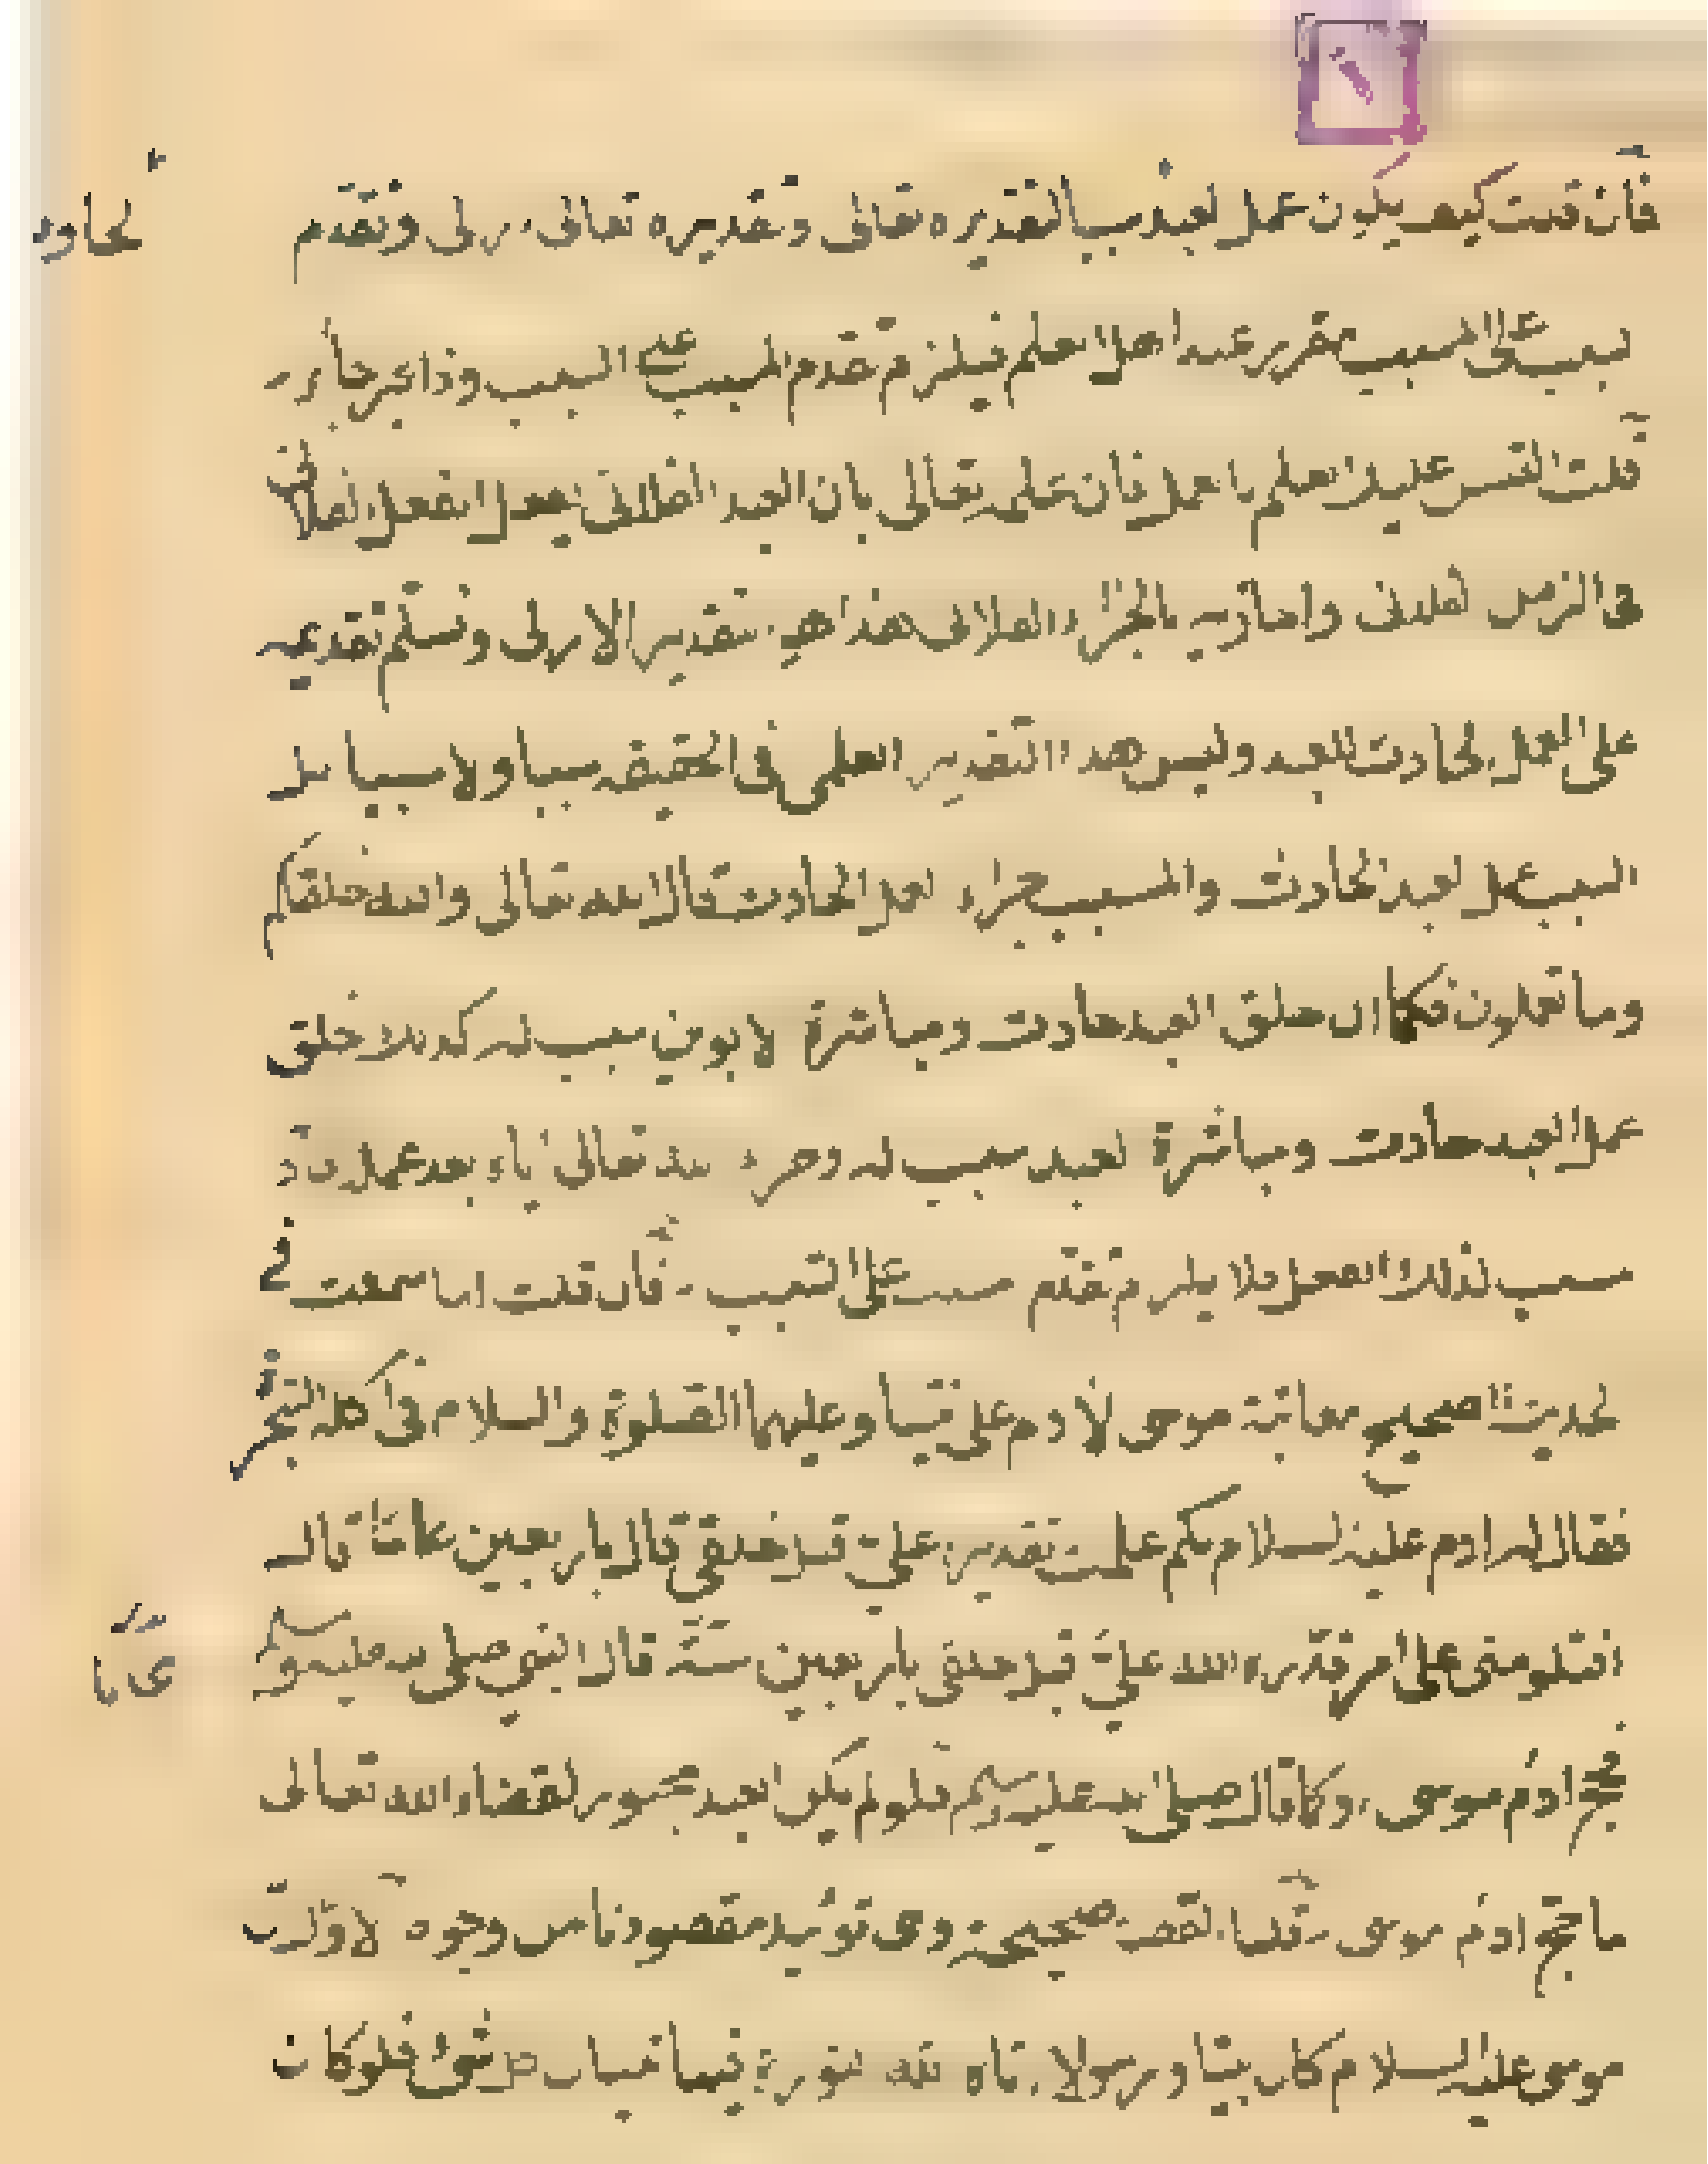 فان قلت كيف يكون عمل العبد سببا لتقديره تعالى وتقديره تعالى ازلى وتقدم
السبب على المسبب مقرر عند اهل العلم فيلزم تقدم المسبب على السبب وذا غير جائز
قلت التبس عليك العلم بالعمل فان علمه تعالى بان العبد الفلانى يعمل الفعل الفلانى
فى الزمن الفلانى واجازيه بالجزاء الفلانى هذا هو تقدير الازلى ونسلم تقديمه
على العمل الحادث للعبد وليس هذا التقدير العلمى فى الحقيقة سببا ولا مسببا بل
السبب عمل العبد الحادث والمسبب جزاء العمل الحادث قال الله تعالى والله خلقكم
وما تعملون فكما ان خلق العبد حادث ومباشرة الابوين سبب له كذلك خلق
عمل العبد حادث ومباشرة العبد سبب له تعالى اياه بعد عمله
سبب لذلك الفعل فلا يلزم تقدم مسبب على السبب فان قلت اما سمعت فى
الحديث الصحيح معاتبة موسى لآدم على نبينا وعليهما الصلوة والسلام فى اكله الشجر
فقال له ادم عليه السلام بكم علمت تقديره على قبل خلقى قال باربعين عاما قال
افتلومنى على امر قدره الله على قبل خلقى باربعين سنة قال النبى صلى الله عليه وسلم
فحج ادم موسى وكما قال صلى الله عليه وسلم فلو لم يكن العبد مجبور لقضاء الله تعالى
ما حج ادم موسى قلنا القصة صحيحة وهى تؤيد مقصودنا من وجوه الاول ان
موسى عليه السلام كان نبيا ورسولا اتاه الله التورية فيها تبيان كل شئ فلو كان